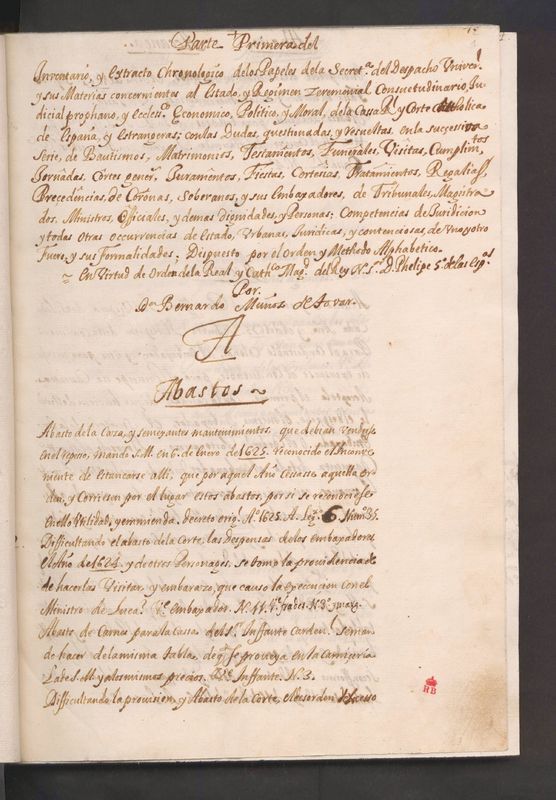 Parte Primera del
Inventario, y extracto Chronologico de los Papeles de la Secret.ª del Despacho Univer.l
y sus Materias concernientes al Estado, y Regimen Zeremonial Consuetudinario, Ju-
dicial prophano, y eccles.co Economico, Politico, y Moral, de la Casa R.l y Corte Catholica
de España, y estrangeras; con las Dudas, questionadas, y resueltas en la sucesiva
Serie, de Bautismos, Matrimonios, Testamentos, Funerales, Visitas, Cumplim.tos
Jornadas, Cortes gener.s Juramentos, Fiestas, Cortesias, Tratamientos, Regalias,
Precedencias, de Coronas, Soberanos, y sus embaxadores, de Tribunales, Magistra-
dos, Ministros, Officiales, y demas dignidades, y Personas; Competencias de Juridicion
y todas otras occurrencias de estado, Urbanas, Juridicas, y contenciosas, de uno y otro
Fuero, y sus Formalidades; Dispuesto por el Orden y Methodo Alphabetico.
En Virtud de Orden de la Real y Cath.ca Mag.d del Rey N. S. D. Phelipe 5.º de las Esp.as
Por
D.n Bernardo Muñoz de Tovar.
A
Abastos
Abasto de la Caza, y semejantes mantenimientos, que debian venderse
en el reposo, mando S. M. en 6. de Enero de 1625. reconocido el Inconve-
niente de estancarse alli, que por aquel Año cesasse aquella or-
den, y Corriesen por el lugar estos abastos, por si se reconociesse
en ello Utilidad, y emmienda. decreto orig.l A.º 1625. A. Leg.º 6 Num.º 35.
Difficultando el abasto de la Corte, las despensas de los embaxadores
el Año de 1624. y de otros Personages, se tomo la providencia de
de hacerlas Visitar, y embarazo, que causo la execucion con el
Ministro de Suecia. V.e Embaxador. N.º 44.
Abasto de Carnes para la Casa del S.r Infante Carden.l se man-
da hacer de la misma tabla, de q.e se provea en la Carniceria
la de S. M. y a los mismos precios. V.e Infante. N. 3.
Difficultando la provision, y Abasto de la Corte, el desorden
RB